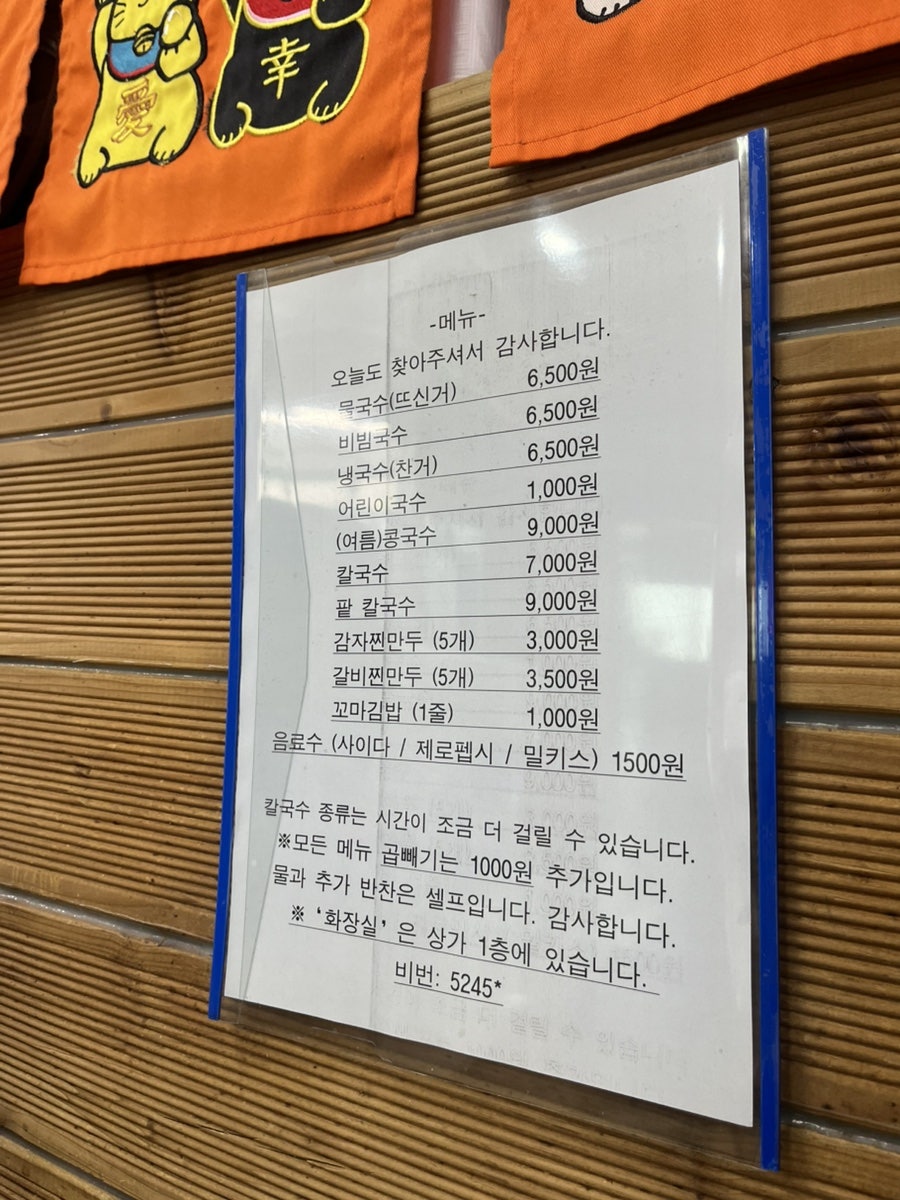 愛
幸
-메뉴-
오늘도 찾아주셔서 감사합니다.
물국수(뜨신거) 6,500원
비빔국수 6,500원
냉국수(찬거) 6,500원
어린이국수 1,000원
(여름)콩국수 9,000원
칼국수 7,000원
팥 칼국수 9,000원
감자찐만두 (5개) 3,000원
갈비찐만두 (5개) 3,500원
꼬마김밥 (1줄) 1,000원
음료수 (사이다 / 제로펩시 / 밀키스) 1500원
칼국수 종류는 시간이 조금 더 걸릴 수 있습니다.
※모든 메뉴 곱빼기는 1000원 추가입니다.
물과 추가 반찬은 셀프입니다. 감사합니다.
※ ‘화장실’ 은 상가 1층에 있습니다.
비번: 5245*